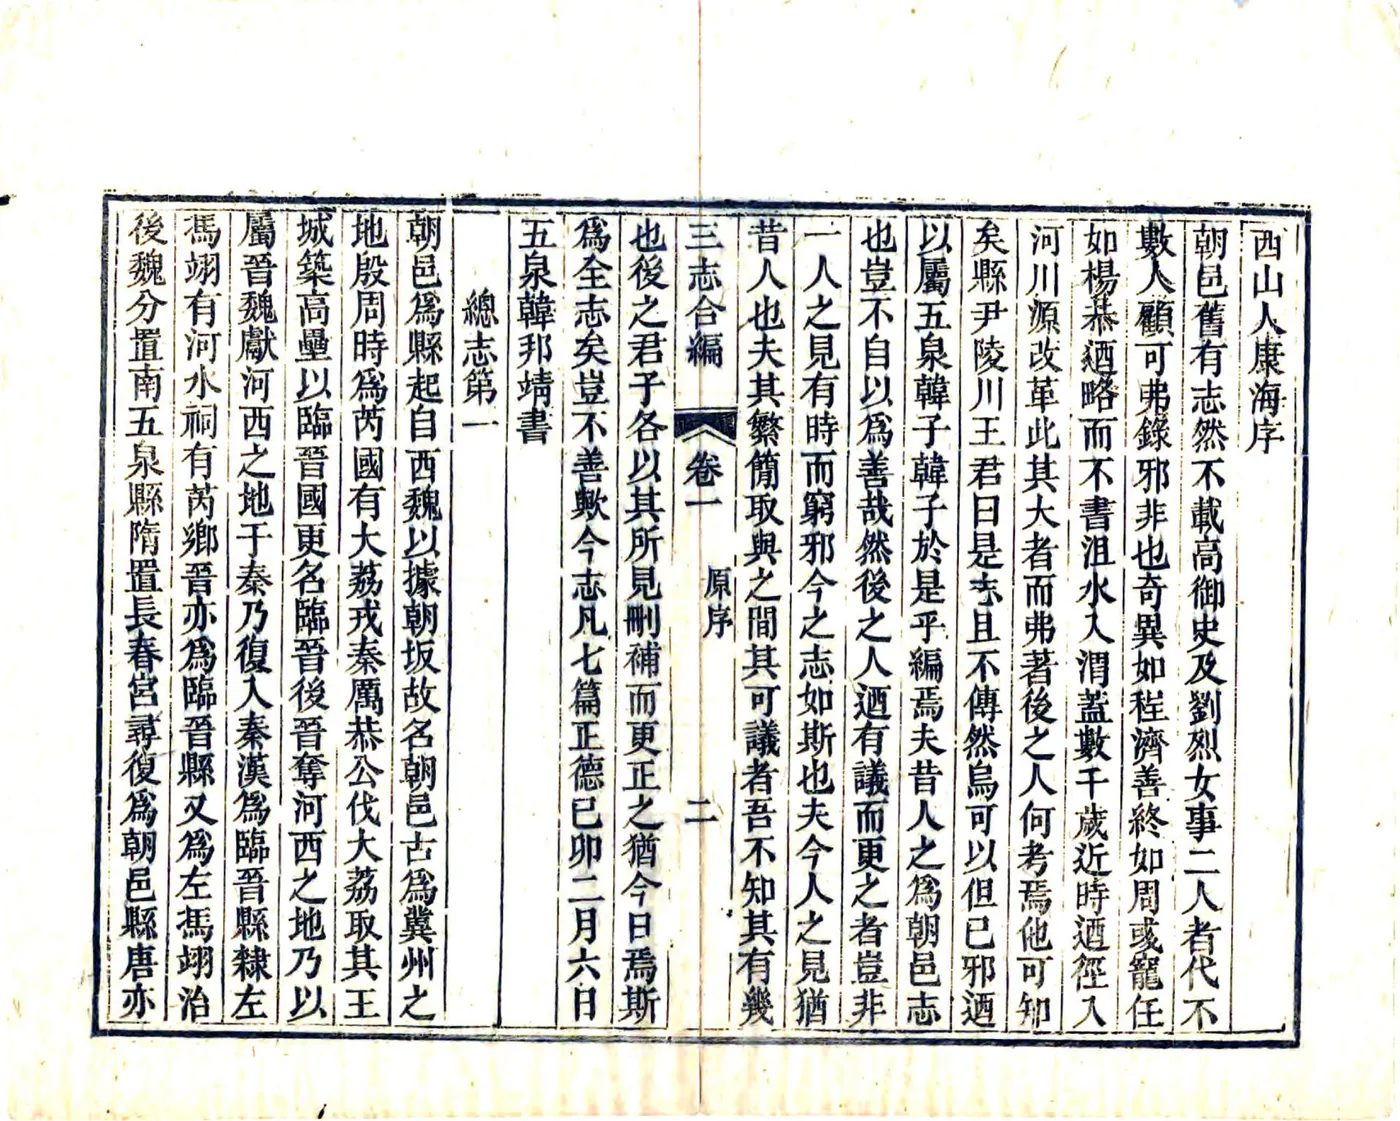 西山人康海序
朝邑舊有志然不載高御史及劉烈女事二人者代不
數人顧可弗錄邪非也奇異如程濟善終如周彧寵任
如楊恭迺略而不書沮水入渭蓋數千歲近時迺徑入
河川源改革此其大者而弗著後之人何考焉他可知
矣縣尹陵川王君曰是志且不傳然烏可以但已邪迺
以屬五泉韓子韓子於是乎編焉夫昔人之為朝邑志
也豈不自以為善哉然後之人迺有議而更之者豈非
一人之見有時而窮邪今之志如斯也夫今人之見猶
昔人也夫其繁簡取與之間其可議者吾不知其有幾
三志合編 卷一 原序 二
也後之君子各以其所見刪補而更正之猶今日焉斯
為全志矣豈不善歟今志凡七篇正德己卯二月六日
五泉韓邦靖書
總志第一
朝邑為縣起自西魏以據朝坂故名朝邑古為冀州之
地殷周時為芮國有大荔戎秦厲恭公伐大荔取其王
城築高壘以臨晉國更名臨晉後晉奪河西之地乃以
屬晉魏獻河西之地于秦乃復入秦漢為臨晉縣隸左
馮翊有河水祠有芮鄉晉亦為臨晉縣又為左馮翊治
後魏分置南五泉縣隋置長春宮尋復為朝邑縣唐亦